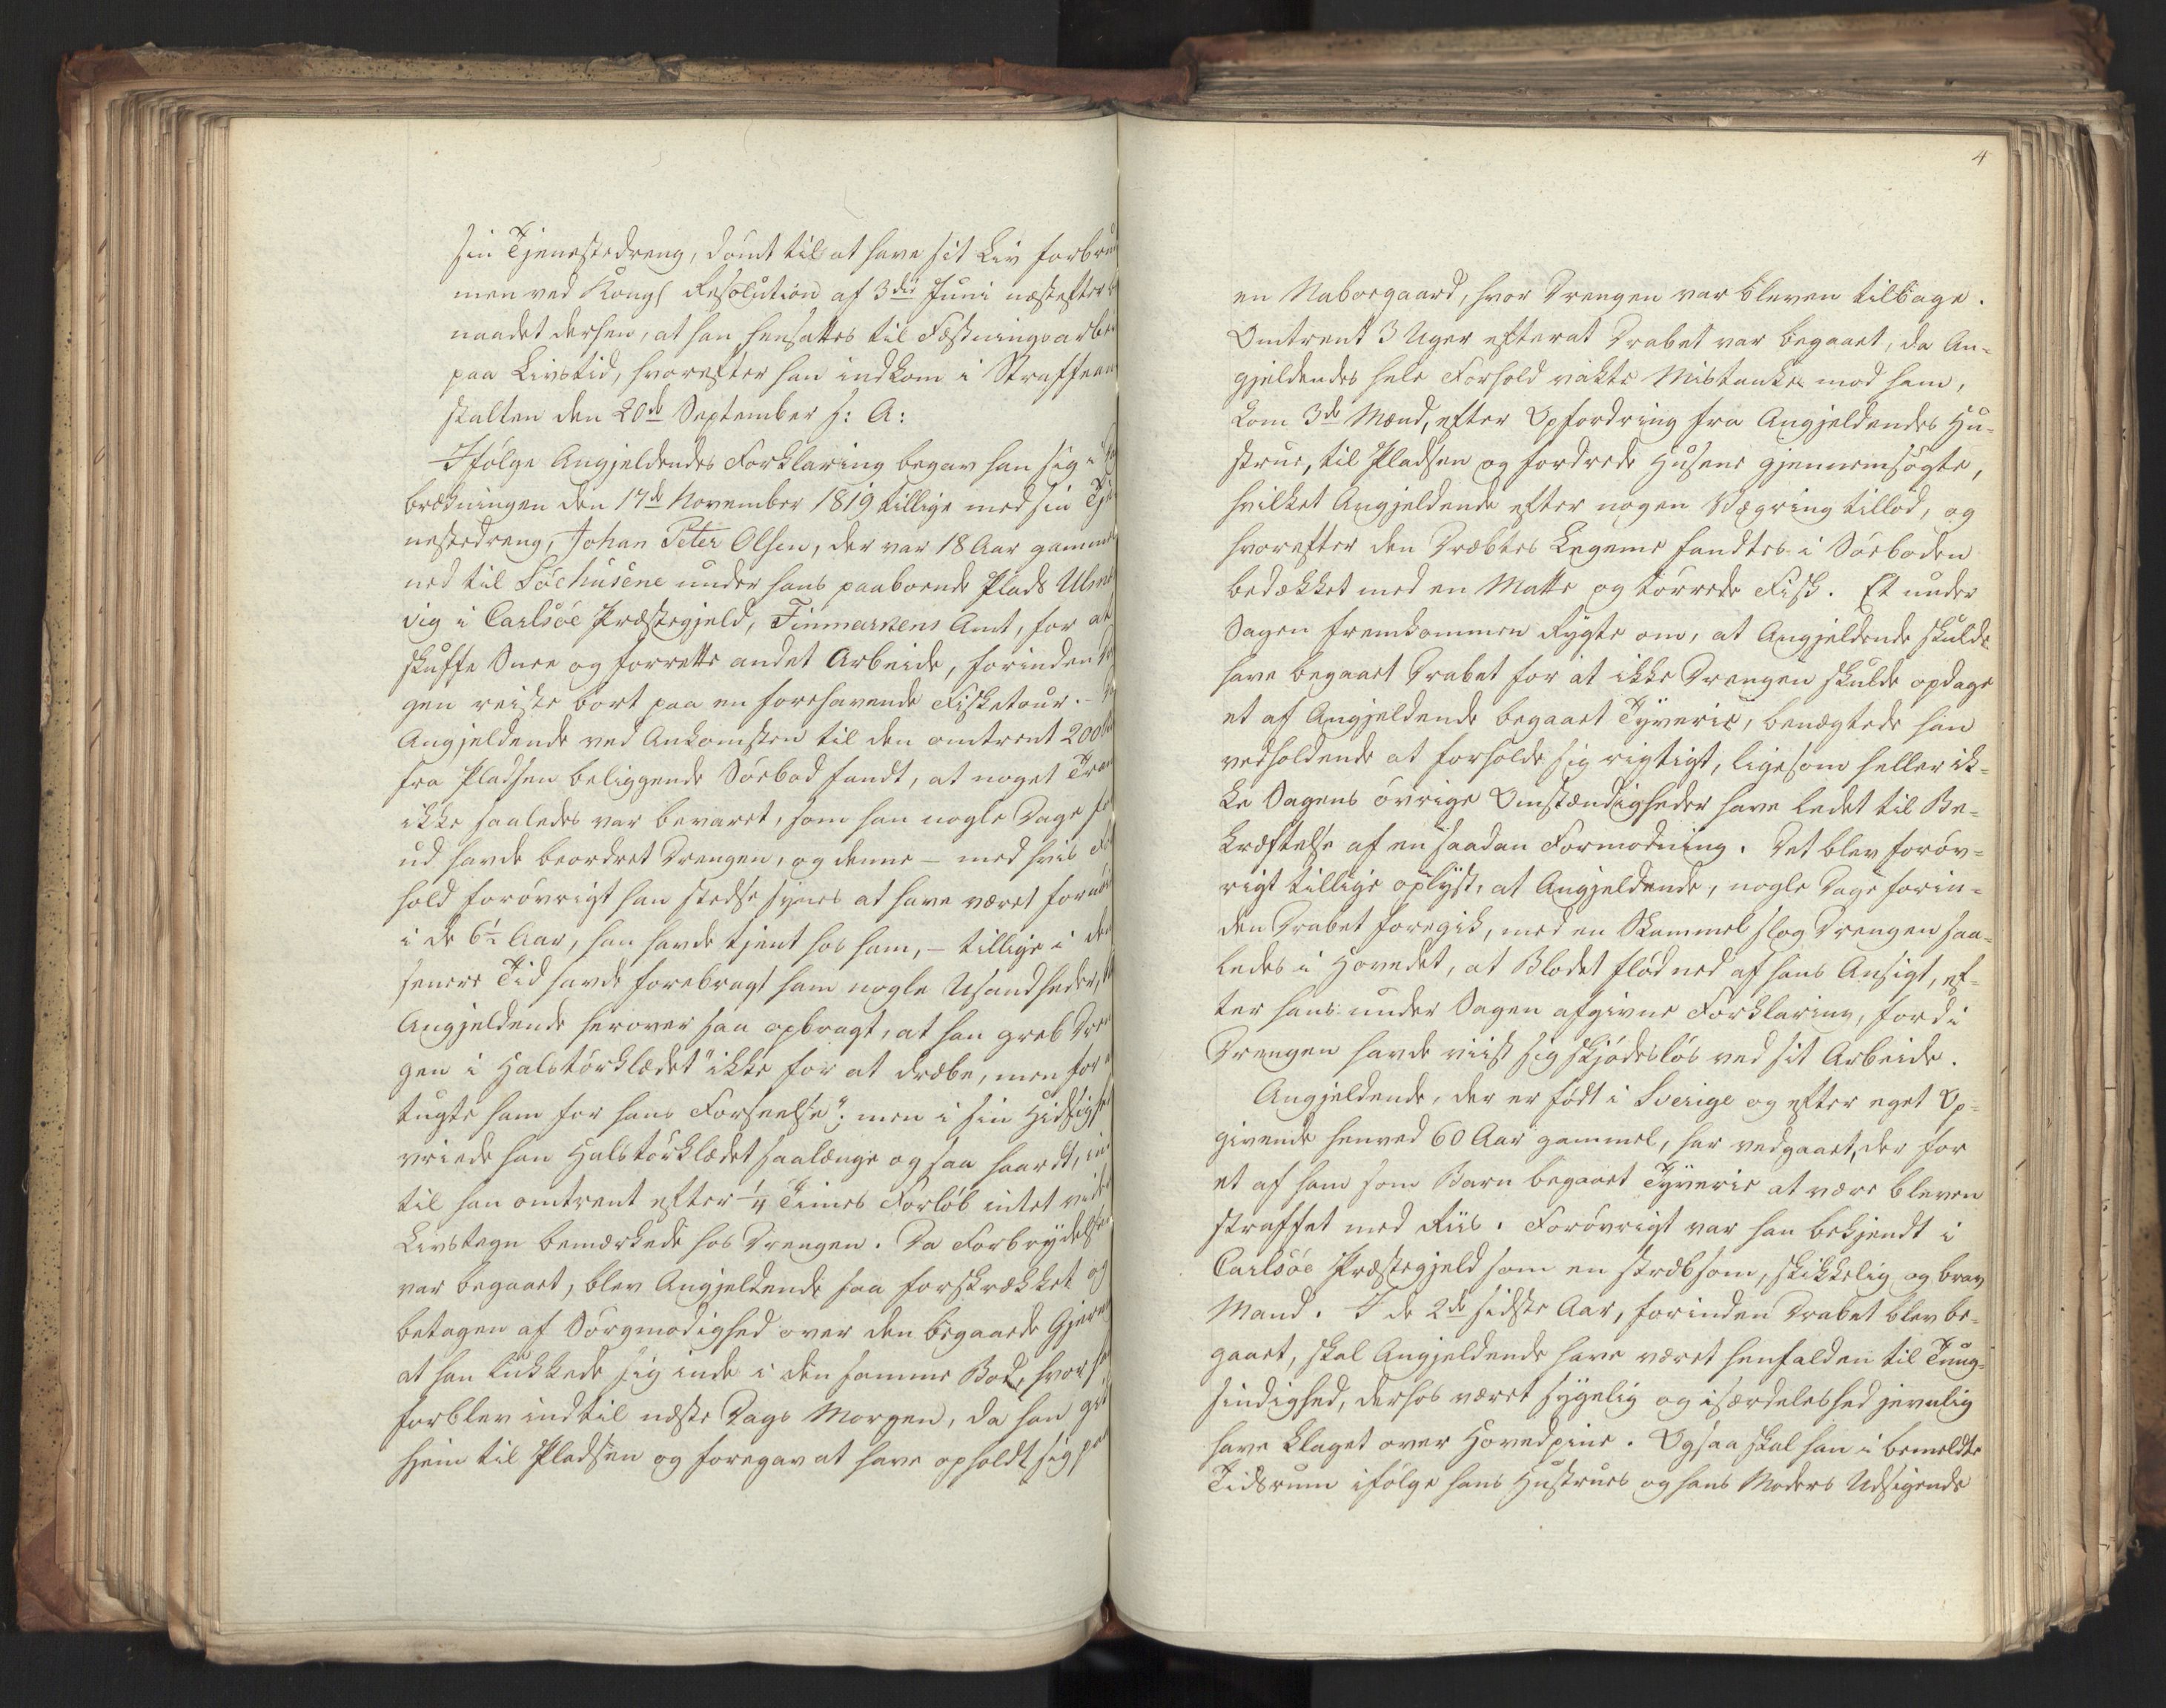 sin Tjenestedreng, dömt til at have sit Liv forbru
men ved Kongl Resolution af 3die Juni næstefter
naadet derhen, at han hensattes til Fæstningsarbei
paa Livstid, hvorefter han indkom i Straffean
stalten den 20de September s: A:
Ifölge Angjeldendes Forklaring begav han sig i
brækningen den 17de November 1819 tillige med sin Tje
nestedreng, Johan Peter Olsen, der var 18 Aar gamme
ned til Söehusene under hans paaboende Plads Ulsne
vig i Carlsöe Præstegjeld, Finmarkens Amt, for at
skuffe Snee og forrette andet Arbeide, forinden
gen reiste bort paa en forehavende Fisketour. -
Angjeldende ved Ankomsten til den omtrent 200
fra Pladsen beliggende Söebod fandt, at noget Tran
ikke saaledes var bevaret, som han nogle Dage fo
ud havde beordret Drengen, og denne - med hvis For
hold forövrigt han stedse synes at have været fornöi
i de 6½ Aar, han havde tjent hos ham, - tillige i den
senere Tid havde forebragt ham nogle Usandheder,
Angjeldende herover saa opbragt, at han greb Dren
gen i Halstörklædet "ikke for at dræbe, men for
tugte ham for hans Forseelse"; men i sin Hidsighe
vriede han Halstörklædet saalænge og saa haardt, in
til han omtrent efter ¼ Times Forlöb intet videre
Livstegn bemærkede hos Drengen. Da Forbrydelse
var begaaet, blev Angjeldende saa forskrækket og
betagen af Sörgmodighed over den begaaede Gjern
at han lukkede sig inde i den samme Bod, hvor
forblev indtil næste Dags Morgen, da han gik
hjem til Pladsen og foregav at have opholdt sig paa
4
en Naboegaard, hvor Drengen var bleven tilbage.
Omtrent 3 Uger efterat Drabet var begaaet, da An=
gjeldendes hele Forhold vakte Mistanke mod ham,
kom 3de Mænd, efter Opfordring fra Angjeldendes Hu=
strue, til Pladsen og fordrede Husene gjennemsögte,
hvilket Angjeldende efter nogen Vægring tillod, og
hvorefter den Dræbtes Legeme fandtes i Söeboden
bedækket med en Matte og törrede Fisk. Et under
Sagen fremkommen Rygte om, at Angjeldende skulde
have begaaet Drabet for at ikke Drengen skulde opdage
et af Angjeldende begaaet Tyverie, benægtede han
vedholdende at forholde sig rigtigt, ligesom heller ik=
ke Sagens övrige Omstændigheder have ledet til Be=
kræftelse af en saadan Formodning. Det blev foröv=
rigt tillige oplyst, at Angjeldende, nogle Dage forin=
den Drabet foregik, med en Skammel slog Drengen saa=
ledes i Hovedet, at Blodet flöd ned af hans Ansigt, ef=
ter hans under Sagen afgivne Forklaring, fordi
Drengen havde viist sig skjödeslös ved sit Arbeide.
Angjeldende, der er födt i Sverige og efter eget Op=
givende henved 60 Aar gammel, har vedgaaet, der for
et af ham som Barn begaaet Tyverie at være bleven
straffet med Riis. Forövrigt var han bekjendt i
Carlsöe Præstegjeld som en stræbsom, skikkelig og brav
Mand. I de 2de sidste Aar, forinden Drabet blev be=
gaaet, skal Angjeldende have været henfalden til Tung=
sindighed, derhos været sygelig og isærdeleshed jevnlig
have klaget over Hovedpine. Ogsaa skal han i bemeldte
Tidsrum ifölge hans Hustrues og hans Moders Udsigende